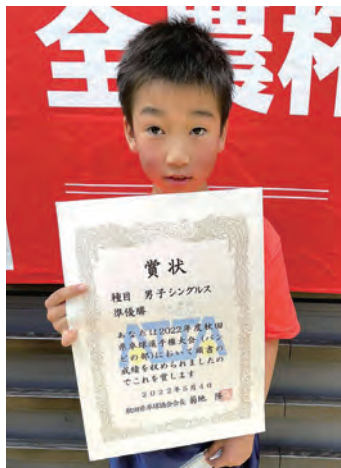 全農杯
賞状
種目 男子シングルス
準優勝
あなたは2022年度秋田
県卓球選手権大会(バン
ビの部)において頭書の
成績を収められましたの
でこれを賞します
2022年5月4日
秋田県卓球協会会長 菊地 隆